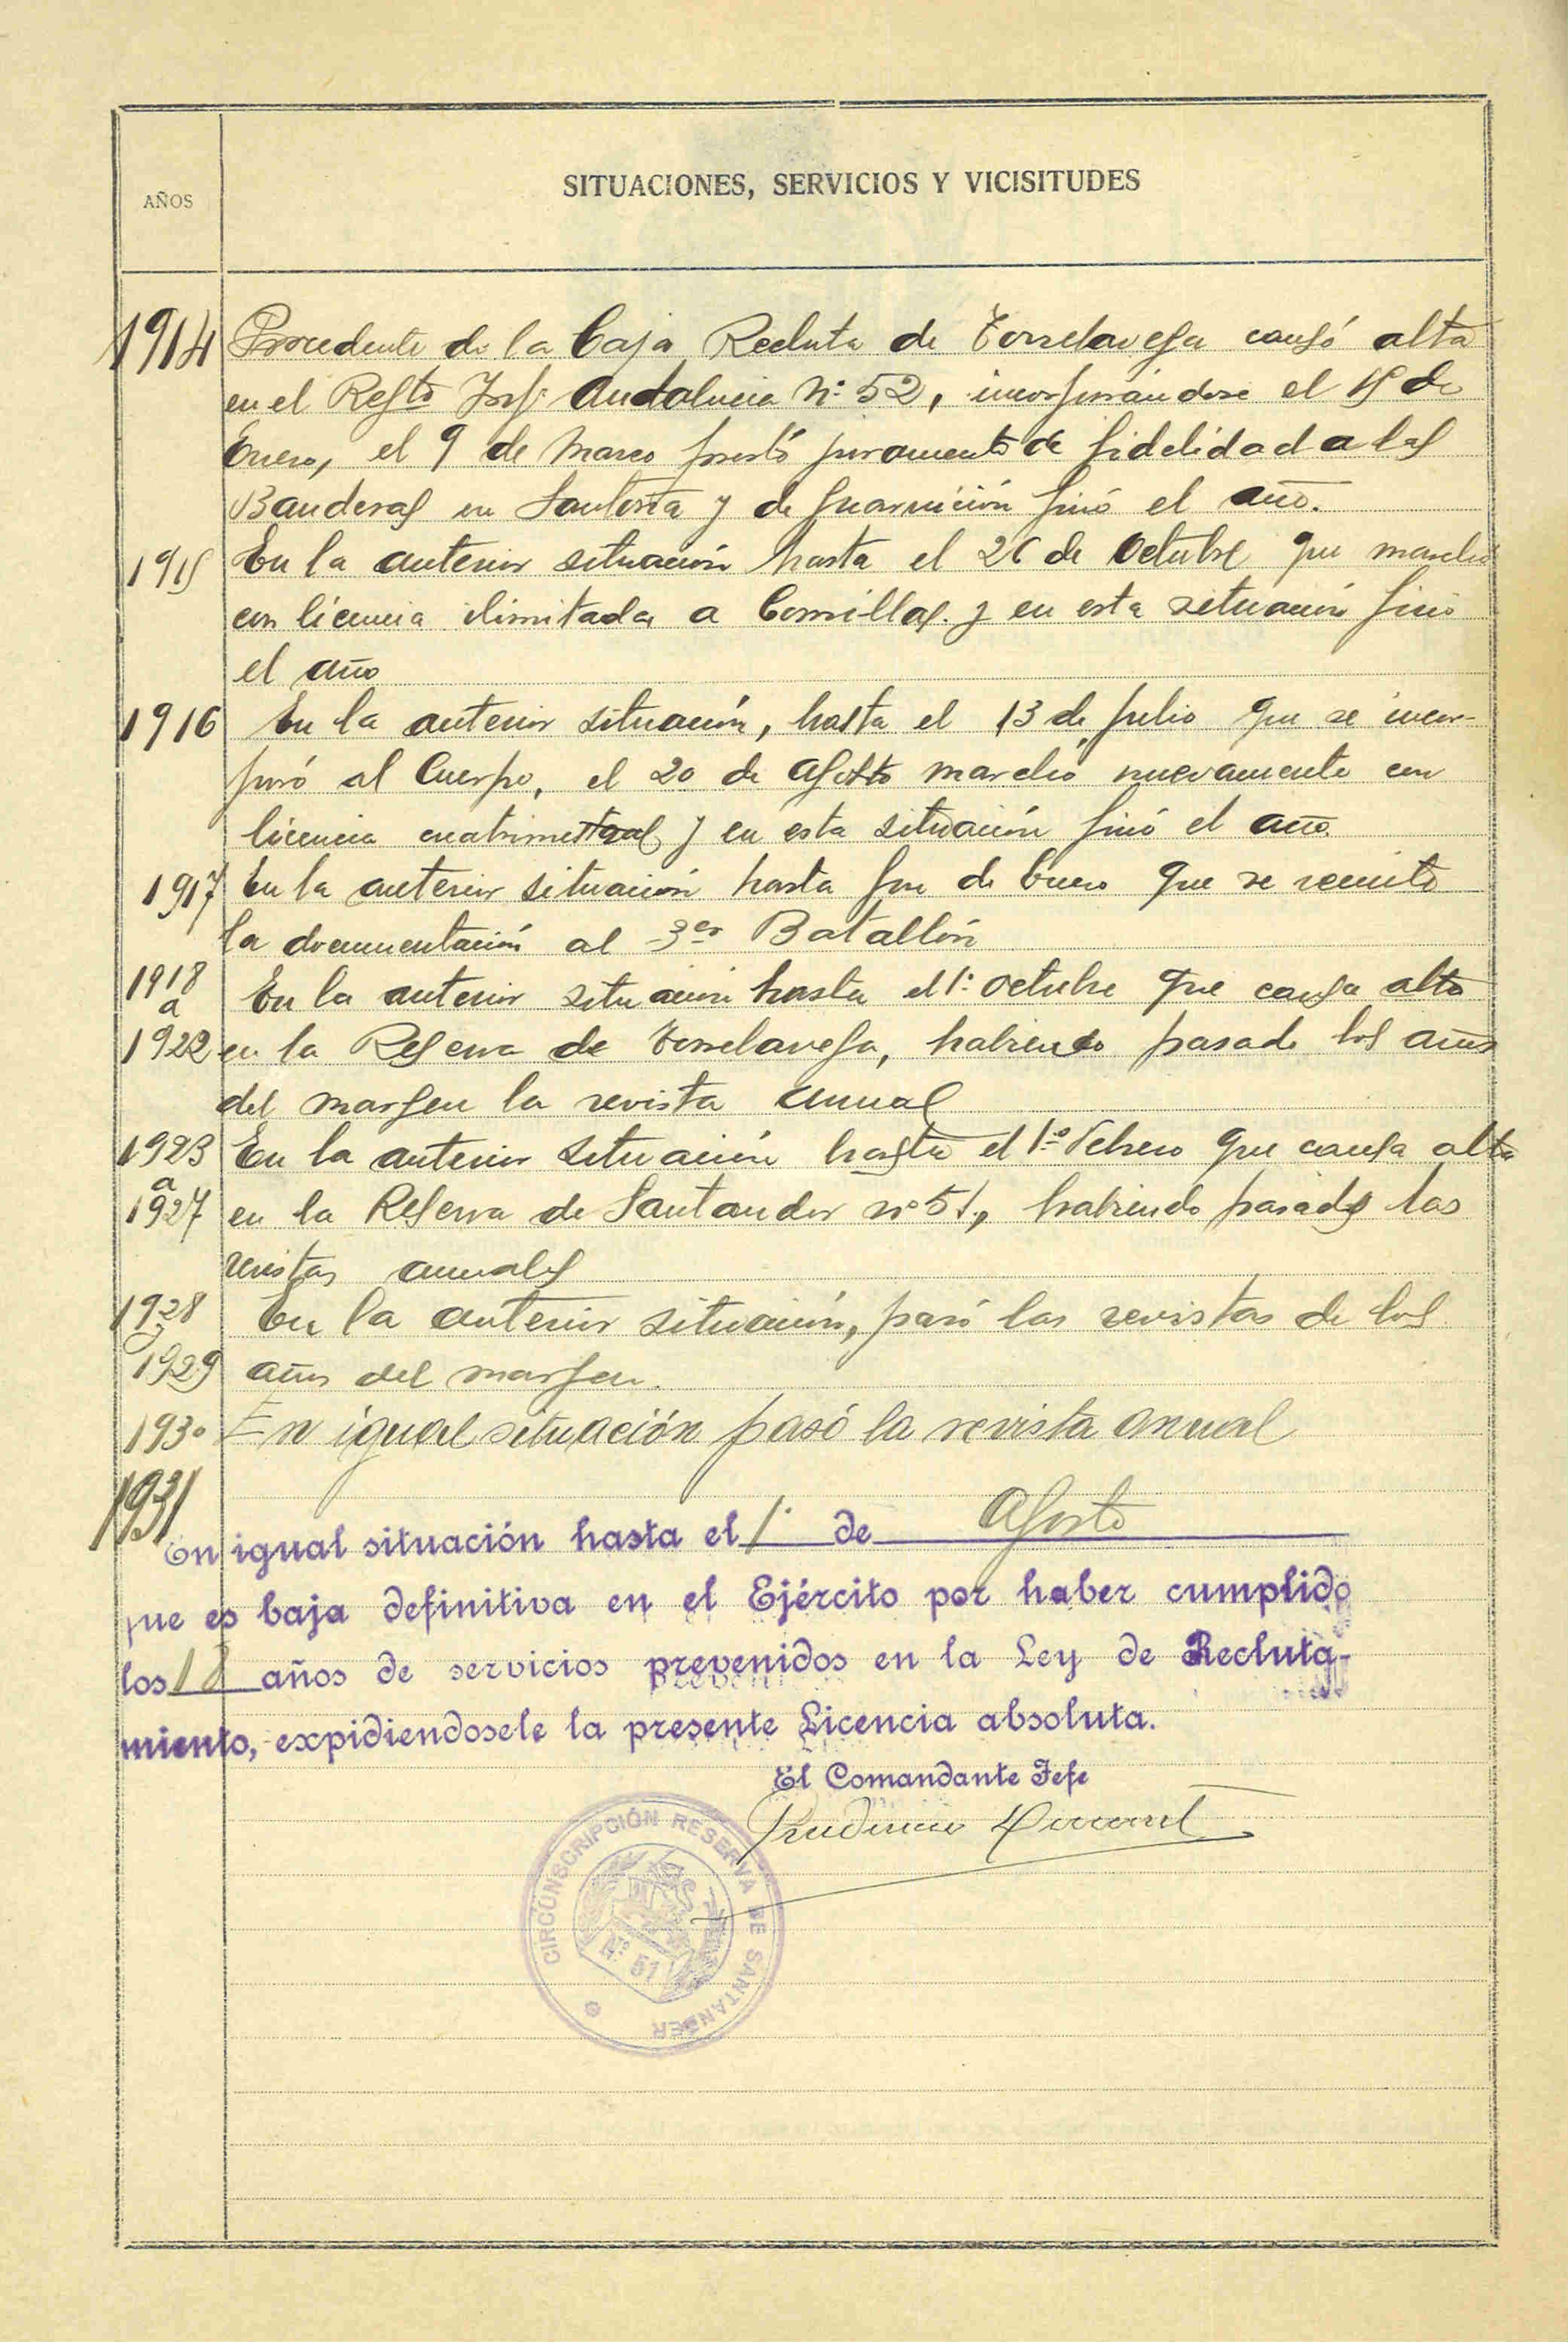 AÑOS
SITUACIONES, SERVICIOS Y VICISITUDES
1914 Procedente de la Caja Recluta de Torrelavega causó alta
en el Regto Inf. Andalucia Nº 52, incorporándose el 15 de
Enero, el 9 de Marzo prestó juramento de fidelidad a las
Banderas en Santoña y de guarnición finó el año.
1915 En la anterior situación hasta el 26 de Octubre que marchó
con licencia ilimitada a Comillas. y en esta situación finó
el año
1916 En la anterior situación, hasta el 13 de Julio que se incor-
poró al Cuerpo, el 20 de Agosto marchó nuevamente con
licencia cuatrimestral y en esta situación finó el año.
1917 En la anterior situación hasta fin de Enero que se remite
la documentación al 3er Batallón
1918 En la anterior situación hasta el 1º octubre que causa alta
a
1922 en la Reserva de Torrelavega, habiendo pasado los años
del margen la revista anual
1923 En la anterior situación hasta el 1º Febrero que causa alta
a
1927 en la Reserva de Santander nº 51, habiendo pasado las
revistas anuales
1928 En la anterior situación, pasó las revistas de los
y
1929 años del margen.
1930 En igual situación pasó la revista anual
1931
En igual situación hasta el 1º de Agosto
que es baja definitiva en el Ejército por haber cumplido
los 18 años de servicios prevenidos en la Ley de Recluta-
miento, expidiendosele la presente Licencia absoluta.
El Comandante Jefe
Prudencio
CIRCUNSCRIPCIÓN RESERVA DE SANTANDER
Nº 51